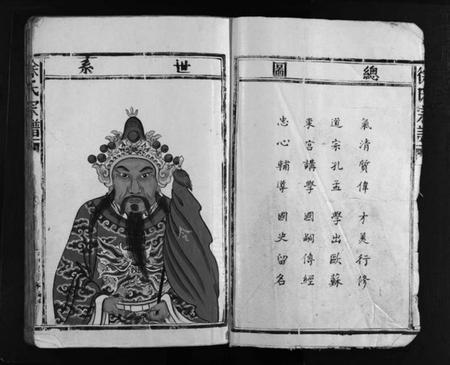 總圖
世系
氣清質偉 才美行修
道宗孔孟 學出歐蘇
東宮講學 國嗣傳經
忠心輔導 國史留名
徐氏宗譜